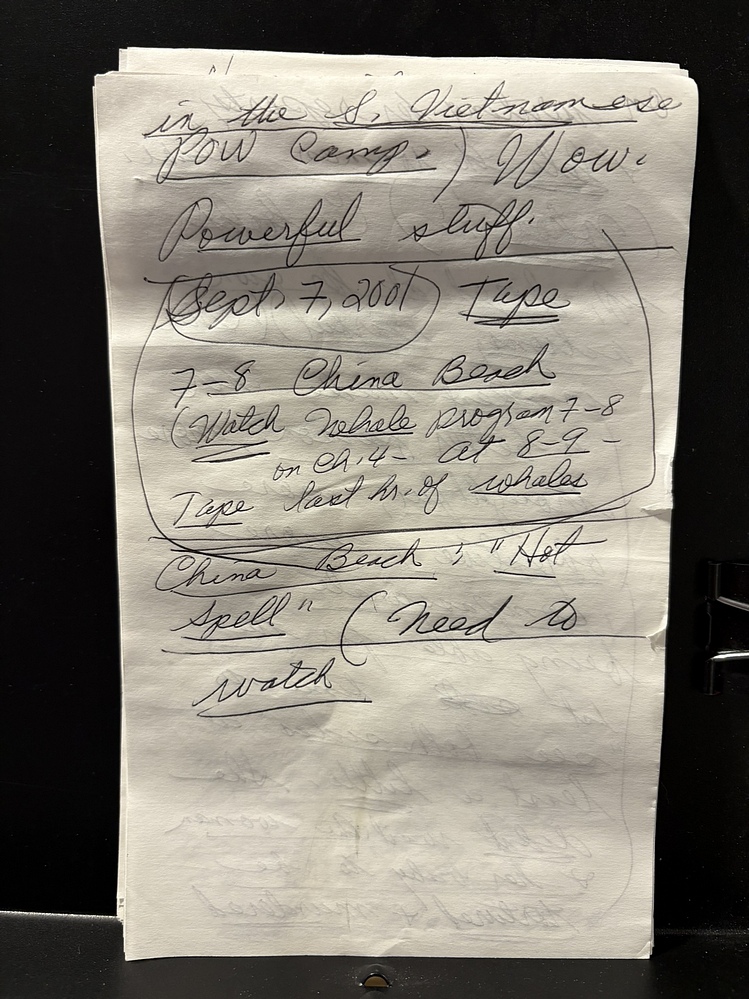 in the S. Vietnamese
POW Camp.) Wow.
Powerful stuff.
Sept, 7, 2001 Tape
7-8 China Beach
(Watch whole program 7-8
on Ch. 4- at 8-9-
Tape last hr. of whales
China Beach; "Hot
Spell" (need to
watch